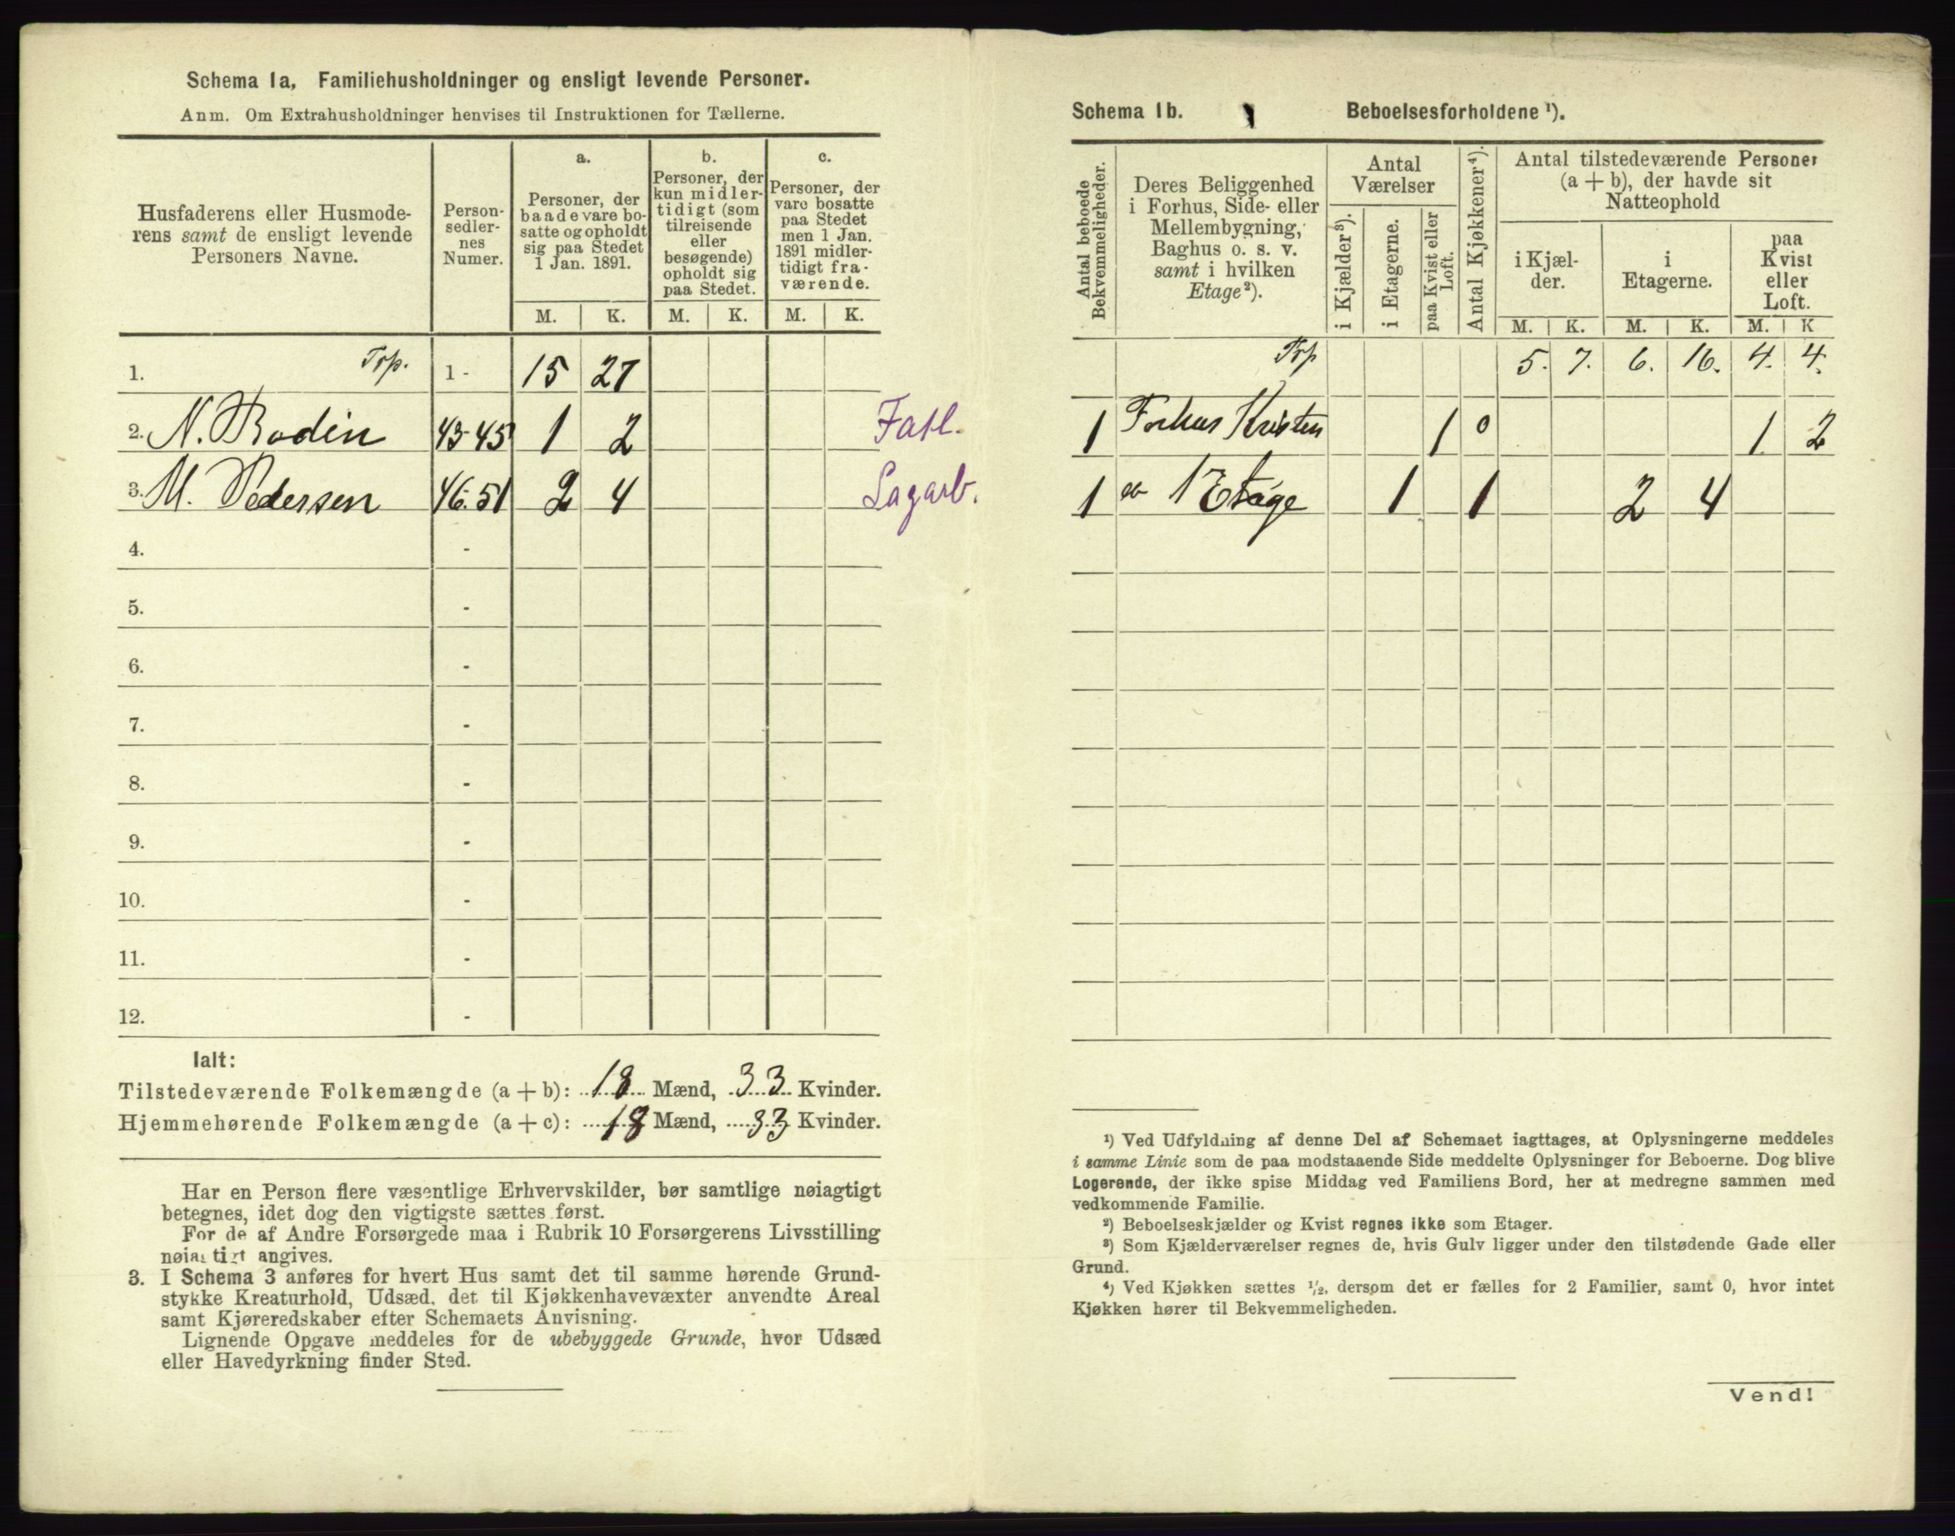 Schema 1a, Familiehusholdninger og ensligt levende Personer.
Anm. Om Extrahusholdninger henvises til Instruktionen for Tællerne.
Husfaderens eller Husmode-
rens samt de ensligt levende
Personers Navne.
Person-
sedler-
nes
Numer.
a.
Personer, der
baade vare bo-
satte og opholdt
sig paa Stedet
1 Jan. 1891.
b.
Personer, der
kun midler-
tidigt (som
tilreisende
eller
besøgende)
opholdt sig
paa Stedet.
c.
Personer, der
vare bosatte
paa Stedet
men 1 Jan.
1891 midler-
tidigt fra-
værende.
M. K. M. K. M. K.
1. Trp. 1 - 15 27
2. N. Bodin 43-45 1 2 Fatl.
3. M. Pedersen 46-51 2 4 Lagarb.
4. -
5. -
6. -
7. -
8. -
9. -
10. -
11. -
12. -
Ialt:
Tilstedeværende Folkemængde (a + b): 18 Mænd, 33 Kvinder.
Hjemmehørende Folkemængde (a + c): 18 Mænd, 33 Kvinder.
Har en Person flere væsentlige Erhvervskilder, bør samtlige nøiagtigt
betegnes, idet dog den vigtigste sættes først.
For de af Andre Forsørgede maa i Rubrik 10 Forsørgerens Livsstilling
nøiagtigt angives.
3. I Schema 3 anføres for hvert Hus samt det til samme hørende Grund-
stykke Kreaturhold, Udsæd, det til Kjøkkenhavevæxter anvendte Areal
samt Kjøreredskaber efter Schemaets Anvisning.
Lignende Opgave meddeles for de ubebyggede Grunde, hvor Udsæd
eller Havedyrkning finder Sted.
Schema 1b. Beboelsesforholdene ¹).
Antal beboede
Bekvemmeligheder.
Deres Beliggenhed
i Forhus, Side- eller
Mellembygning,
Baghus o. s. v.
samt i hvilken
Etage²).
Antal
Værelser
i Kjælder³).
i Etagerne.
paa Kvist eller
Loft.
Antal Kjøkkener⁴).
Antal tilstedeværende Personer
(a + b), der havde sit
Natteophold
i Kjæl-
der.
i
Etagerne.
paa
Kvist
eller
Loft.
M. K. M. K. M. K
Trp 5. 7. 6. 16. 4. 4.
1 Forhus Kvisten 1 0 1 2
1 do 1 Etage 1 1 2 4
¹) Ved Udfyldning af denne Del af Schemaet iagttages, at Oplysningerne meddeles
i samme Linie som de paa modstaaende Side meddelte Oplysninger for Beboerne. Dog blive
Logerende, der ikke spise Middag ved Familiens Bord, her at medregne sammen med
vedkommende Familie.
²) Beboelseskjælder og Kvist regnes ikke som Etager.
³) Som Kjælderværelser regnes de, hvis Gulv ligger under den tilstødende Gade eller
Grund.
⁴) Ved Kjøkken sættes ½, dersom det er fælles for 2 Familier, samt 0, hvor intet
Kjøkken hører til Bekvemmeligheden.
Vend!